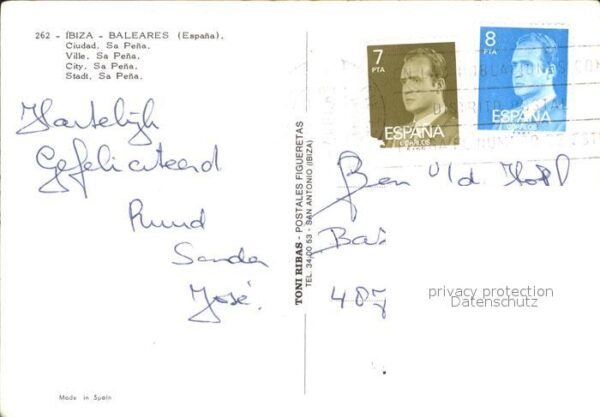 262 - IBIZA - BALEARES (España).
Ciudad. Sa Peña.
Ville. Sa Peña.
City. Sa Peña.
Stadt. Sa Peña.
7
PTA
ESPAÑA
CORREOS
8
PTA
ESPAÑA
CORREOS
Hartelijk
Gefeliciteerd
Ruud
Sanda
José.
TONI RIBAS - POSTALES FIGUERETAS
TEL. 34 00 53 - SAN ANTONIO (IBIZA)
Ben v/d
Ba
407
privacy protection
Datenschutz
Made in Spain